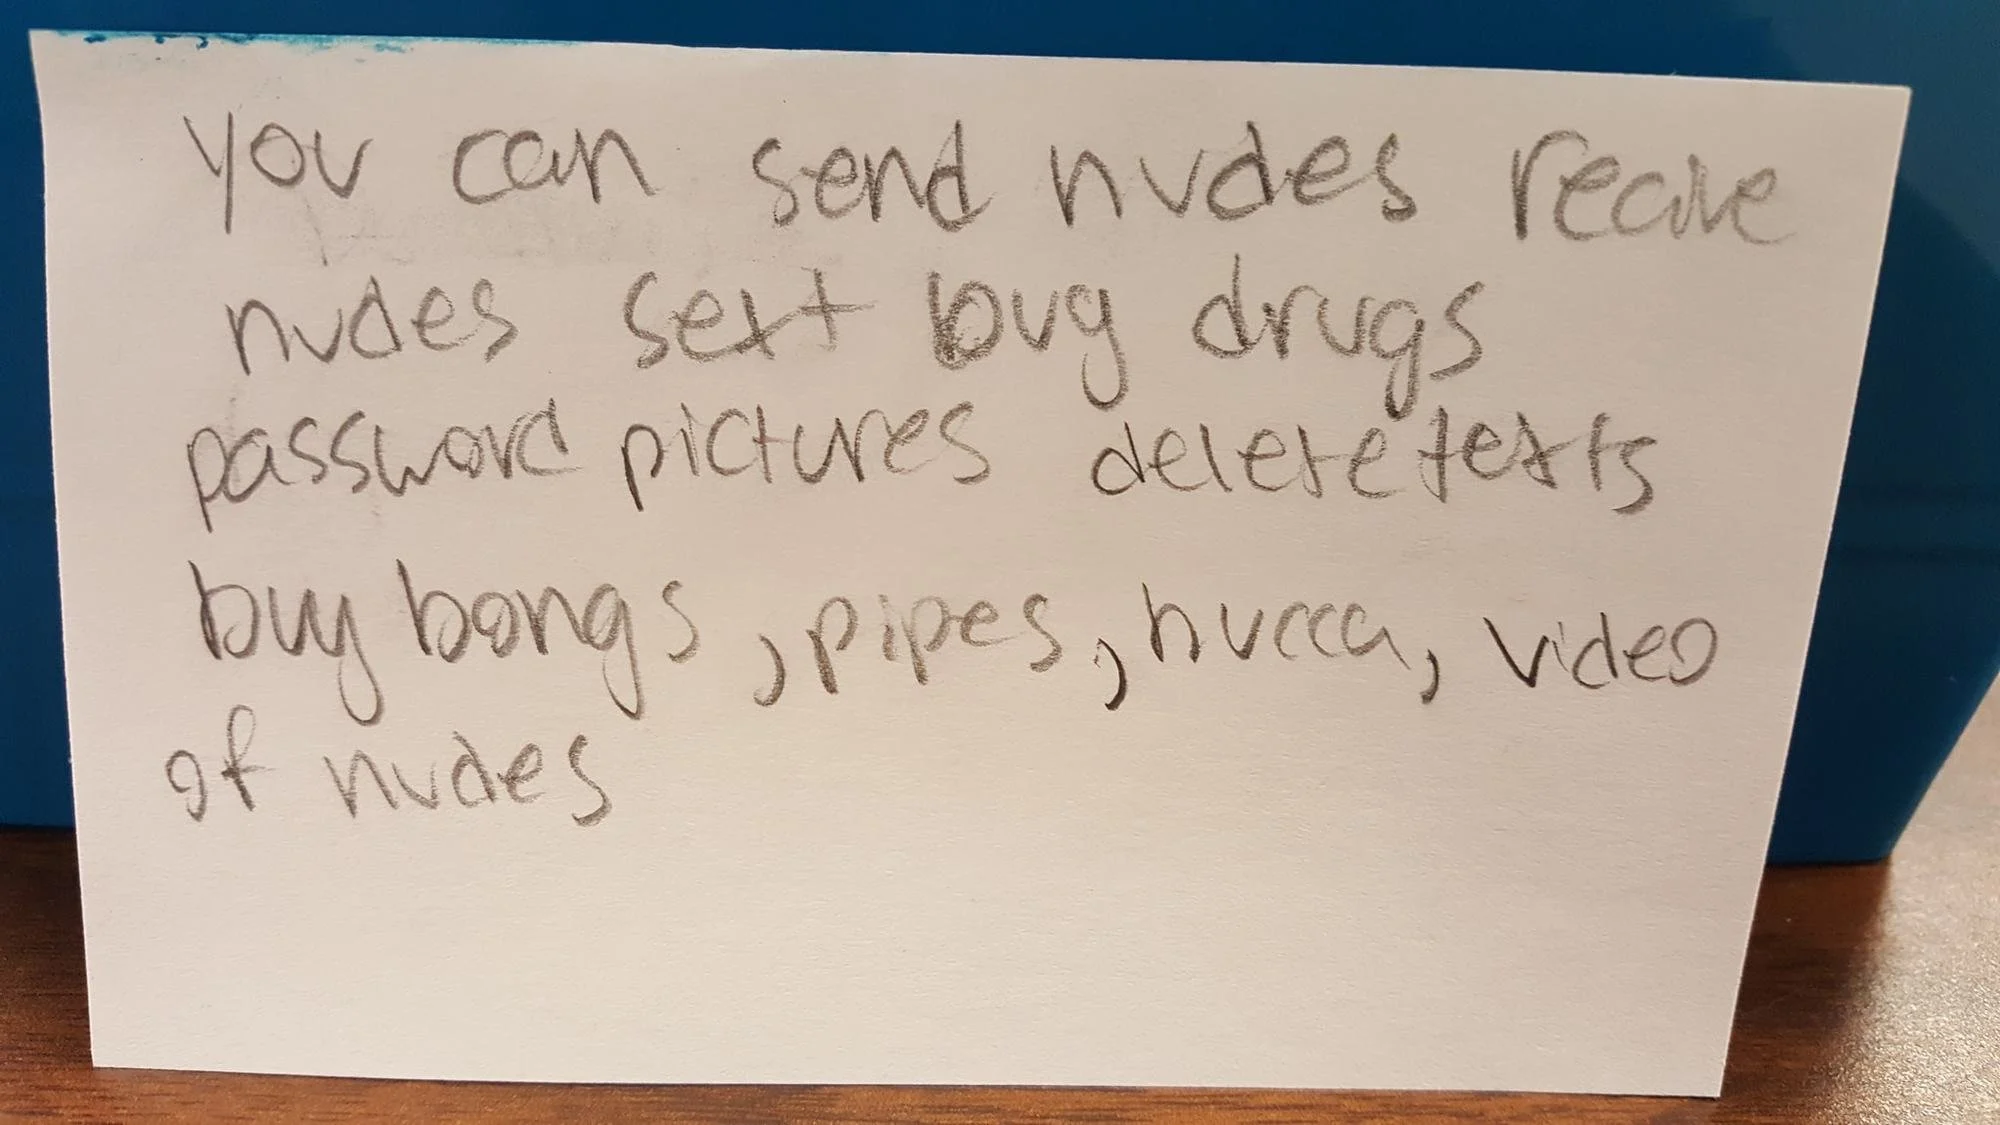 you can send nudes recive
nudes sext buy drugs
password pictures delete texts
buy bongs, pipes, hucca, video
of nudes